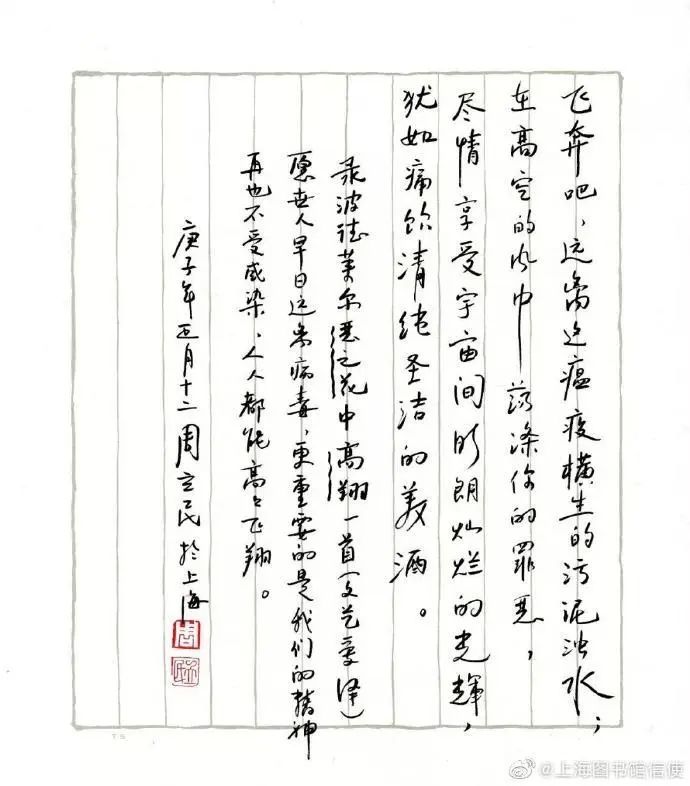 飞奔吧,远离这瘟疫横生的污泥浊水;
在高空的风中荡涤你的罪恶,
尽情享受宇宙间明朗灿烂的光辉,
犹如痛饮清纯圣洁的美酒。
录波德莱尔恶之花中高翔一首(文艺译)
愿世人早日远离病毒,更重要的是我们的精神
再也不受感染,人人都能高高飞翔。
庚子年正月十二周立民於上海
@上海图书馆信使